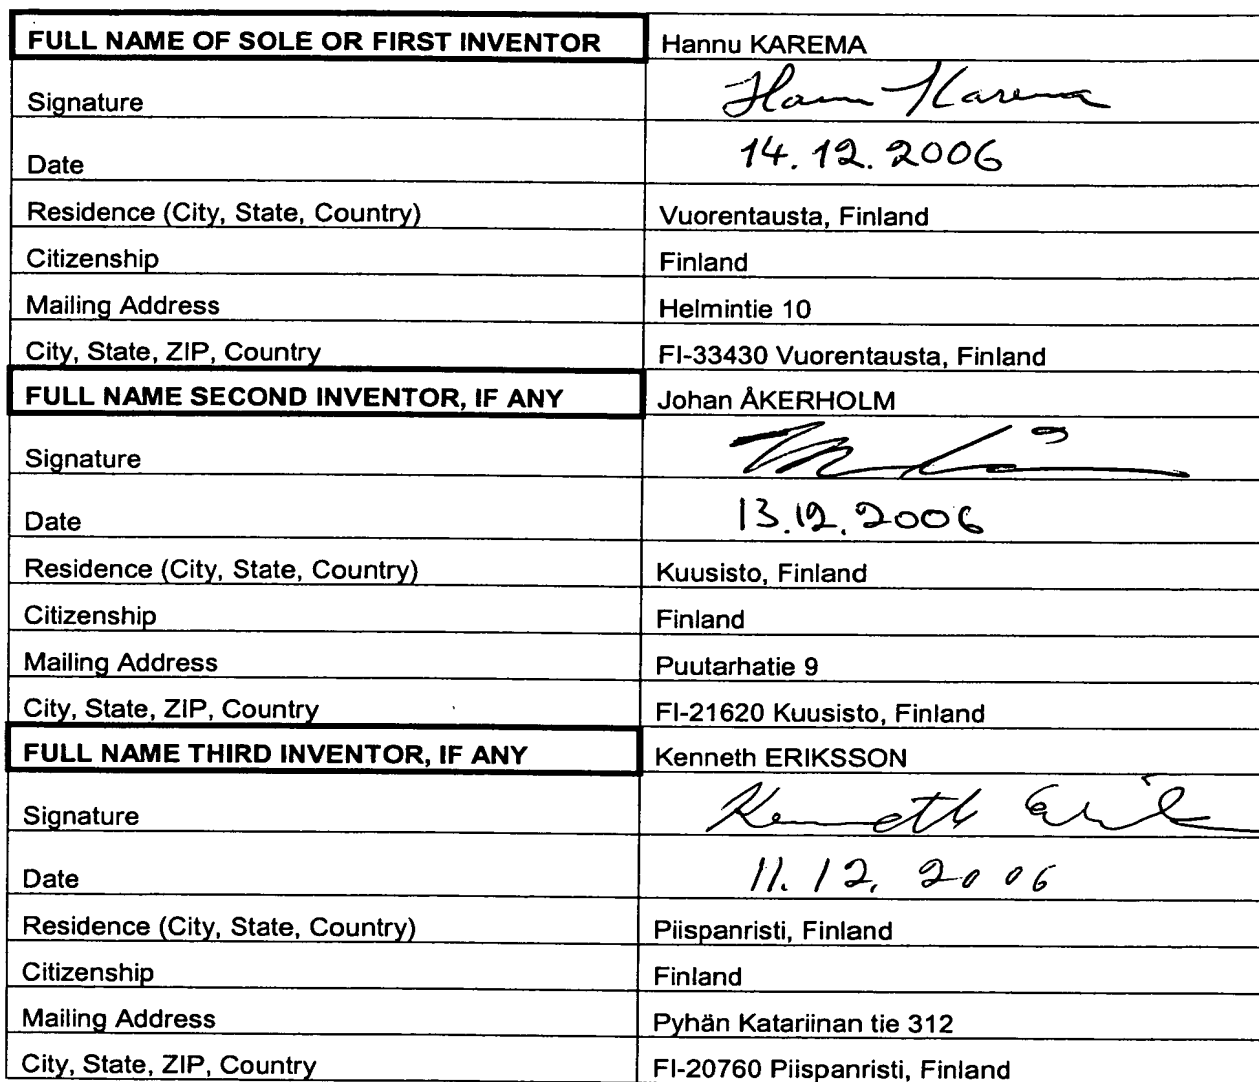 FULL NAME OF SOLE OR FIRST INVENTOR Hannu KAREMA
Signature Hannu Karema
Date 14.12.2006
Residence (City, State, Country) Vuorentausta, Finland
Citizenship Finland
Mailing Address Helmintie 10
City, State, ZIP, Country FI-33430 Vuorentausta, Finland
FULL NAME SECOND INVENTOR, IF ANY Johan ÅKERHOLM
Signature
Date 13.12.2006
Residence (City, State, Country) Kuusisto, Finland
Citizenship Finland
Mailing Address Puutarhatie 9
City, State, ZIP, Country FI-21620 Kuusisto, Finland
FULL NAME THIRD INVENTOR, IF ANY Kenneth ERIKSSON
Signature Kenneth Erik
Date 11.12.2006
Residence (City, State, Country) Piispanristi, Finland
Citizenship Finland
Mailing Address Pyhän Katariinan tie 312
City, State, ZIP, Country FI-20760 Piispanristi, Finland